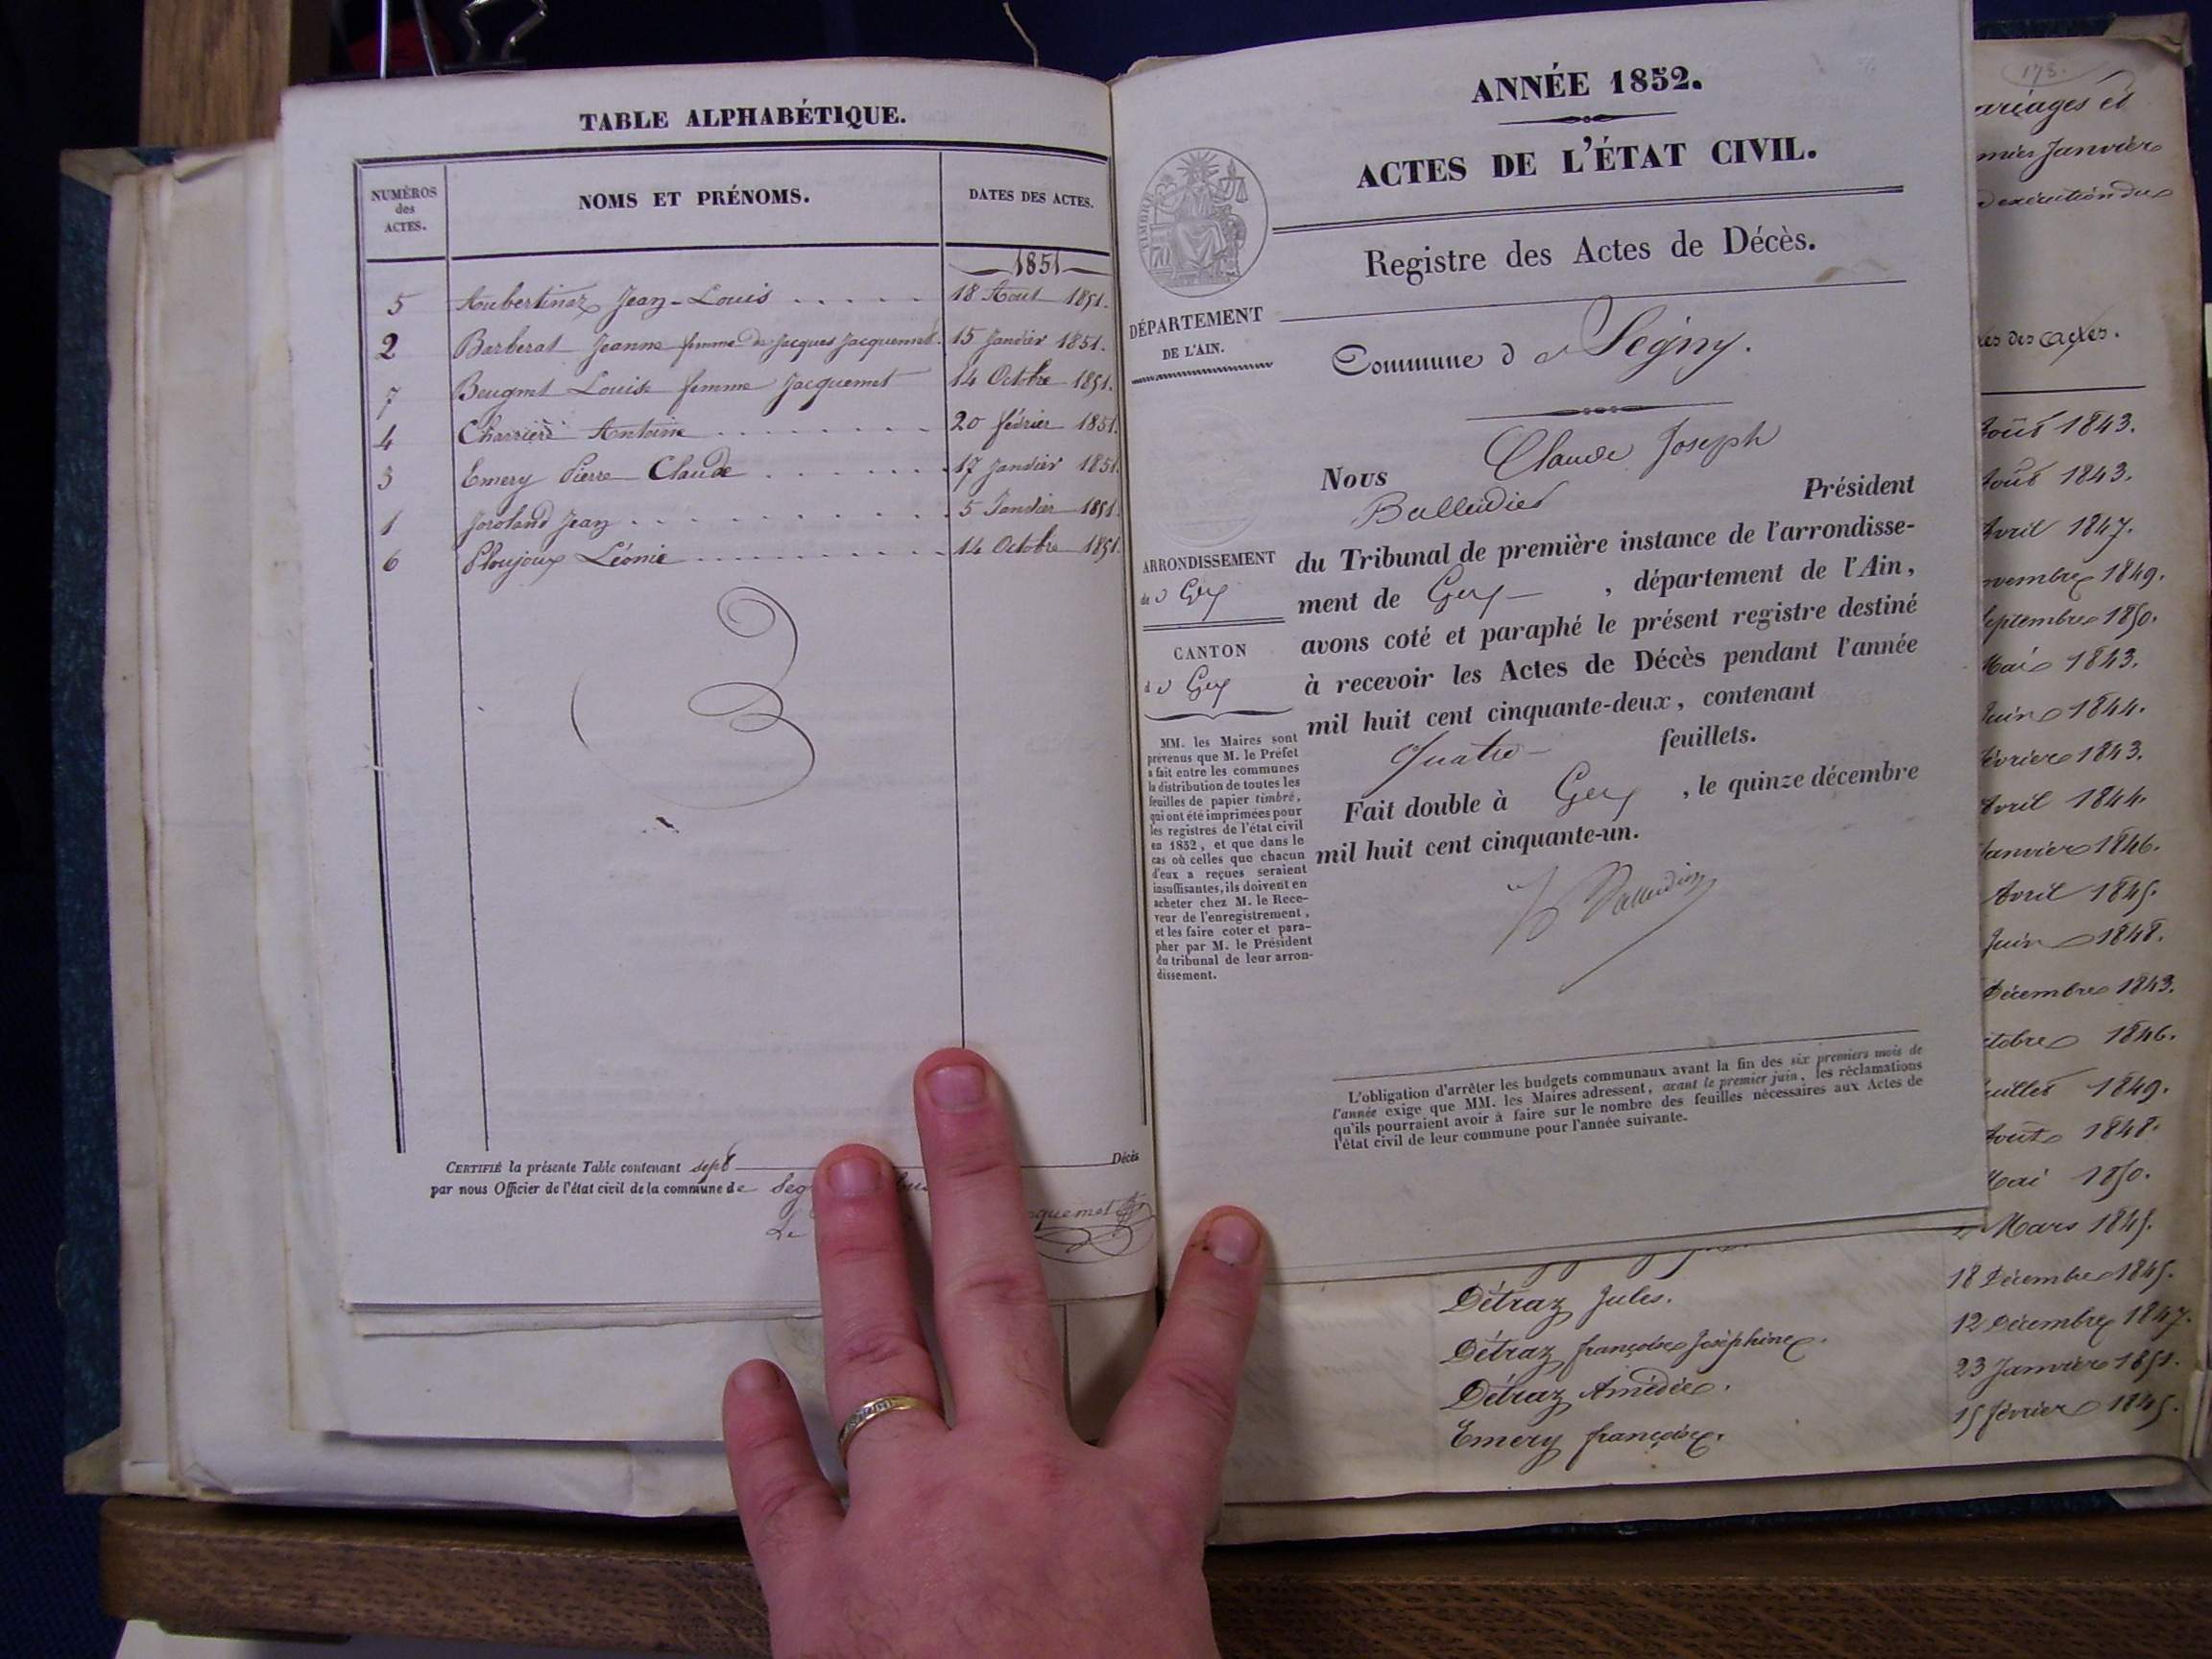 TABLE ALPHABÉTIQUE.
NUMÉROS des ACTES.
NOMS ET PRÉNOMS.
DATES DES ACTES.
1851
5 Aubertinaz Jean-Louis 18 Aout 1851.
2 Barberat Jeanne femme de Jacques Jacquemet. 15 Janvier 1851.
7 Louise femme Jacquemet 14 Octobre 1851.
4 Charriere Antoine 20 février 1851.
3 Emery Pierre Claude 17 Janvier 1851.
1 Jean 5 Janvier 1851.
6 Ploujoux Léonie 14 Octobre 1851.
CERTIFIÉ la présente Table contenant sept Décès
par nous Officier de l'état civil de la commune de Seg
Le quemet
ANNÉE 1852.
ACTES DE L'ÉTAT CIVIL.
Registre des Actes de Décès.
TIMBRE
DÉPARTEMENT
DE L'AIN.
Commune de Segny.
Nous Claude Joseph
Balleidier Président
du Tribunal de première instance de l'arrondisse-
ment de Gex, département de l'Ain,
avons coté et paraphé le présent registre destiné
à recevoir les Actes de Décès pendant l'année
mil huit cent cinquante-deux, contenant
Quatre feuillets.
Fait double à Gex, le quinze décembre
mil huit cent cinquante-un.
Balleidier
ARRONDISSEMENT
de Gex
CANTON
de Gex
MM. les Maires sont
prévenus que M. le Préfet
a fait entre les communes
la distribution de toutes les
feuilles de papier timbré,
qui ont été imprimées pour
les registres de l'état civil
en 1852, et que dans le
cas où celles que chacun
d'eux a reçues seraient
insuffisantes, ils doivent en
acheter chez M. le Rece-
veur de l'enregistrement,
et les faire coter et para-
pher par M. le Président
du tribunal de leur arron-
dissement.
L'obligation d'arrêter les budgets communaux avant la fin des six premiers mois de
l'année exige que MM. les Maires adressent, avant le premier juin, les réclamations
qu'ils pourraient avoir à faire sur le nombre des feuilles nécessaires aux Actes de
l'état civil de leur commune pour l'année suivante.
178.
ariages et
mier Janvier
exécution du
des actes.
Août 1843.
Août 1843.
Avril 1847.
ovembre 1849.
eptembre 1850.
Mai 1843.
Juin 1844.
évrier 1843.
Avril 1844.
Janvier 1846.
Avril 1845.
Juin 1848.
Décembre 1843.
ctobre 1846.
uillet 1849.
Août 1848.
Mai 1850.
Mars 1845.
18 Décembre 1845.
Détraz Jules. 12 Décembre 1847.
Détraz françoise Joséphine. 23 Janvier 1851.
Détraz Amédée. 15 février 1845.
Emery françoise.